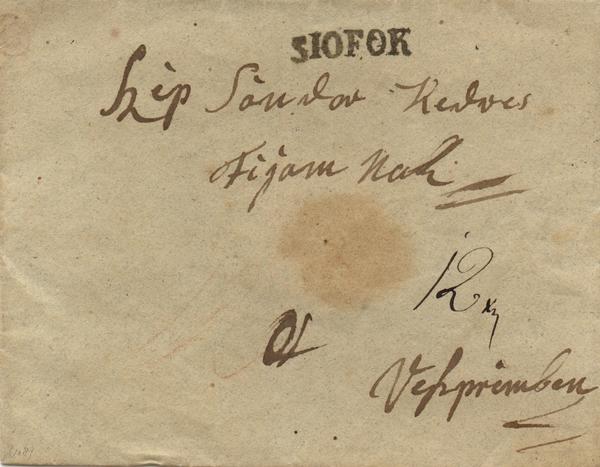 SIOFOK
Szép Sándor Kedves
Fijam Nak
12 xr
Veszprémben